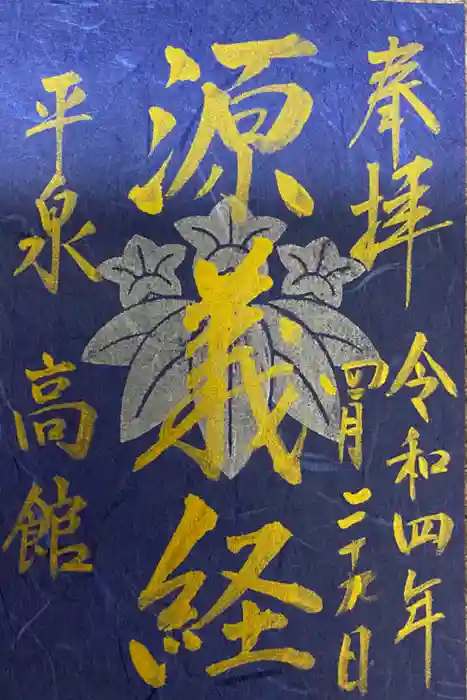 奉拝
令和四年
四月二十九日
源義経
平泉
高館